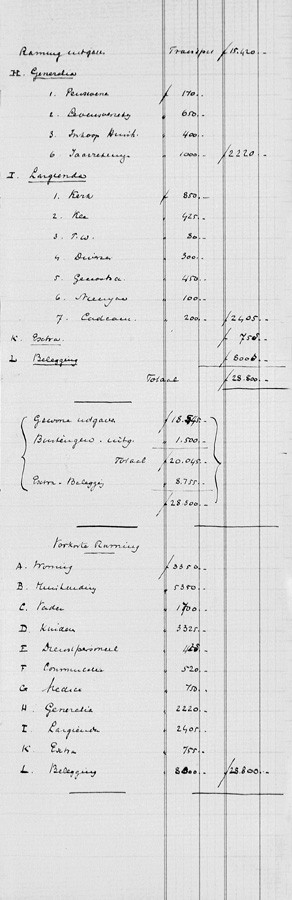 Raming uitgave Transport f 15.420.-
H. Generalia
1. Pensioens f 170.-
2. Levensverz. " 650.-
3. Inkoop Huish. " 400.-
6. Jaarrekening " 1000.- f 2220.-
I. Largienda
1. Kerk f 850.-
2. Rea " 425.-
3. T.W. " 80.-
4. Diversa " 300.-
5. " 450.-
6. " 100.-
7. Cadeaux " 200.- f 2405.-
K. Extra f 755.-
L. Belegging f 8000.-
Totaal f 28.800.-
Gewone uitgave f 18.545.-
Buitengew. uitg. " 1.500.-
Totaal f 20.045.-
Extra-Belegg f 8.755.-
f 28.800.-
Verkorte Raming
A. Woning f 3350.-
B. Huishouding " 5350.-
C. Vader " 1700.-
D. Kinderen " 3325.-
E. Dienstpersoneel " 425.-
F. " 520.-
G. Medica " 750.-
H. Generalia " 2220.-
I. Largienda " 2405.-
K. Extra " 755.-
L. Belegging " 8000.- f 28.800.-